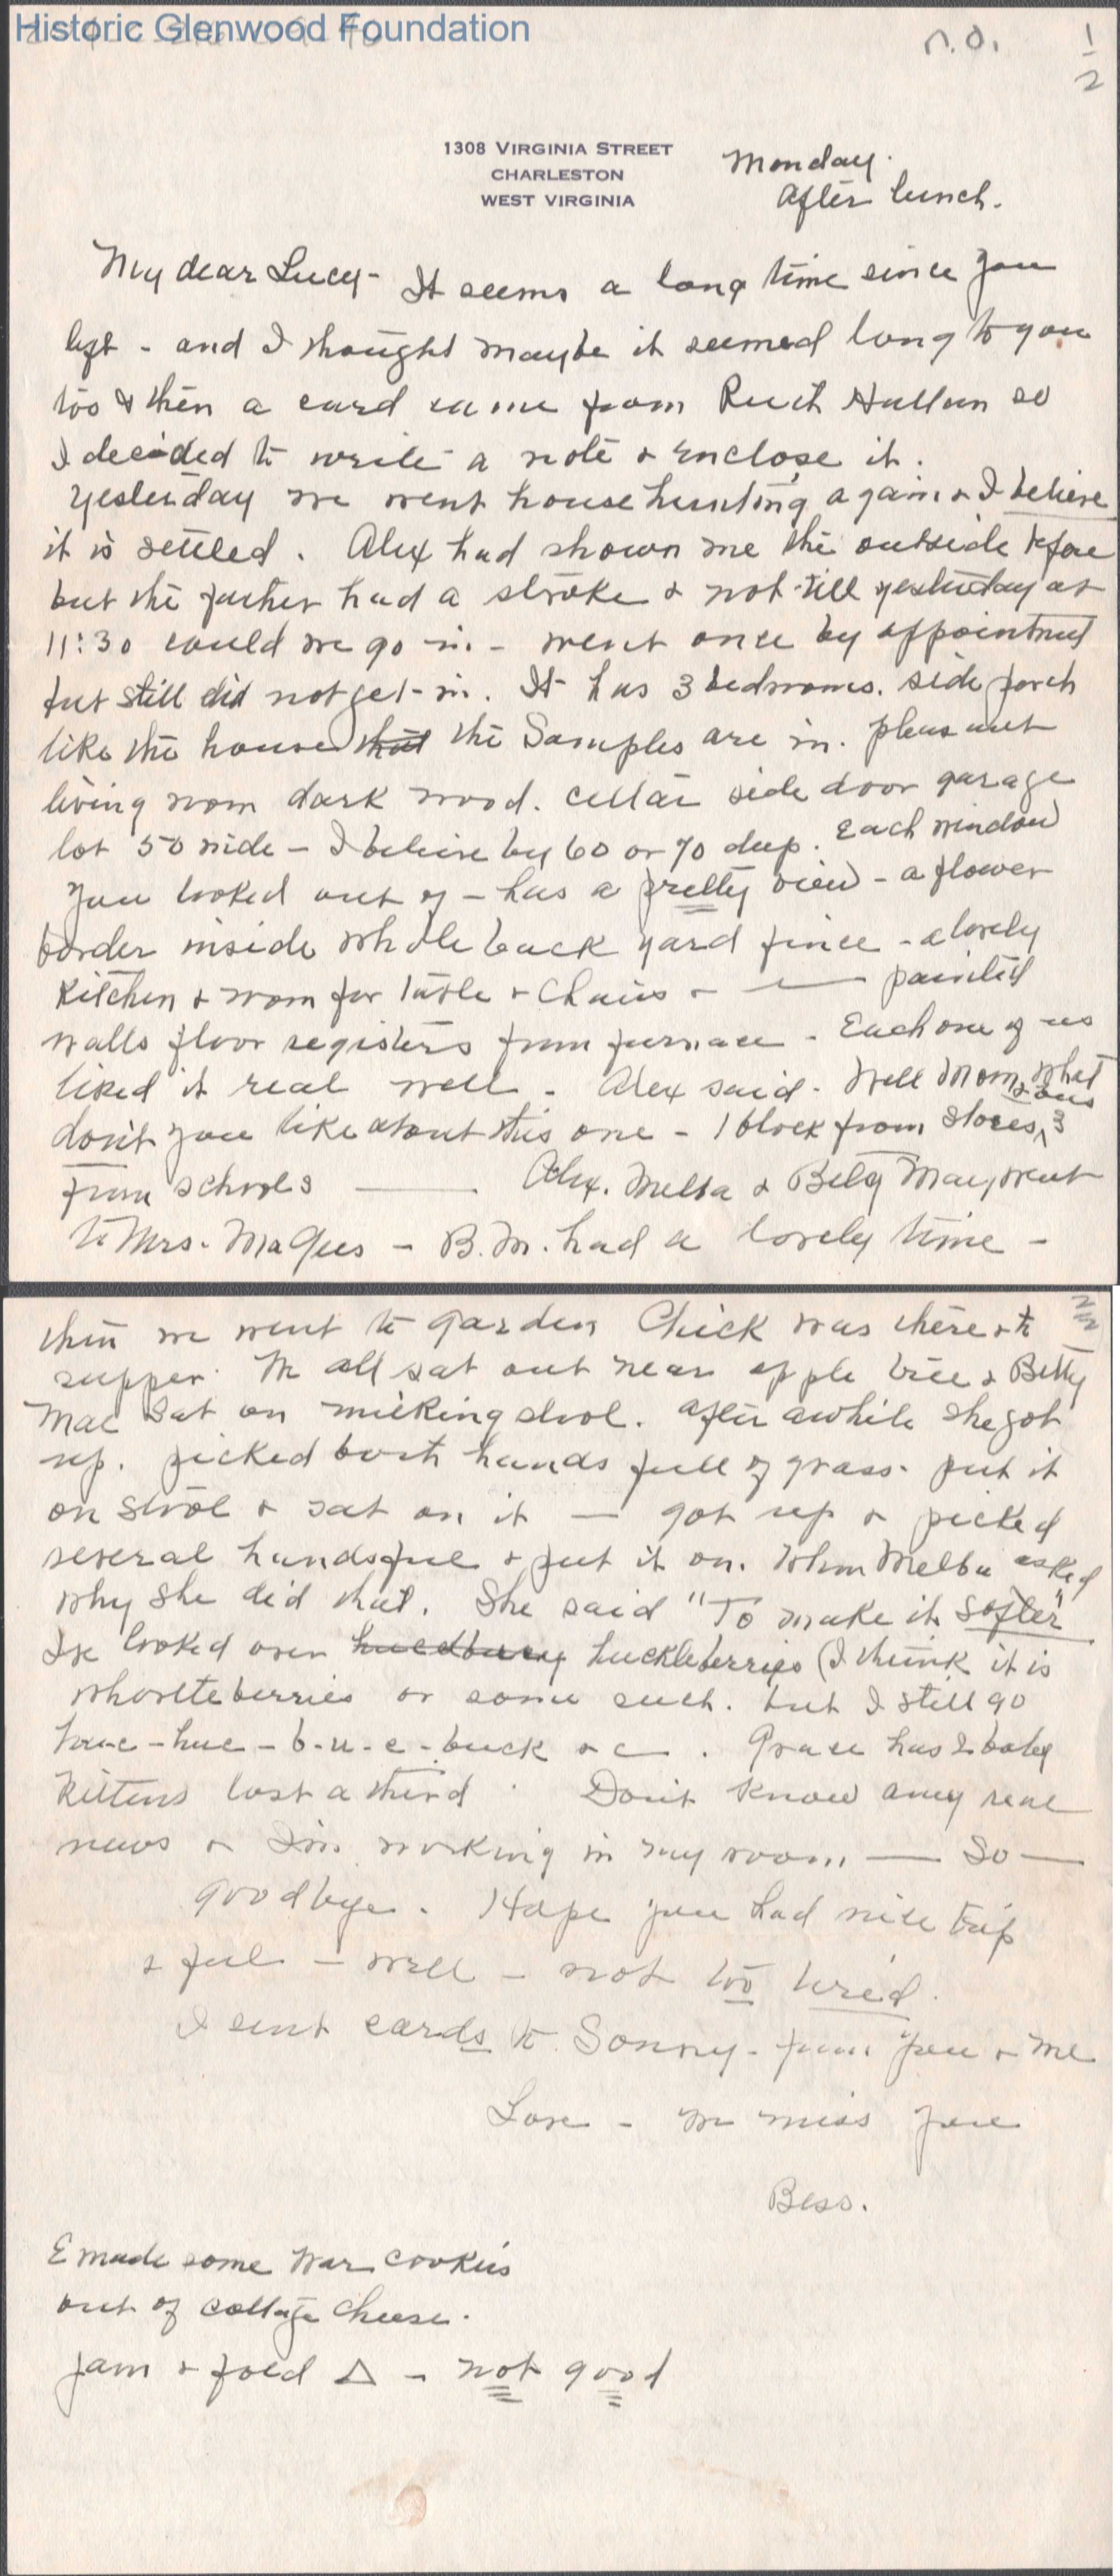 Historic Glenwood Foundation
n.d. 1/2
1308 VIRGINIA STREET
CHARLESTON
WEST VIRGINIA
Monday.
After lunch.
My dear Lucy - It seems a long time since you
left - and I thought maybe it seemed long to you
too & then a card came from Ruth so
I decided to write a note & enclose it.
Yesterday we went house hunting again & I believe
it is settled. Alex had shown me the outside before
but the father had a stroke & not till yesterday at
11:30 could we go in - went once by appointment
but still did not get in. It has 3 bedrooms. side porch
like the house that the Samples are in. pleasant
living room dark wood. cellar side door garage
lot 50 wide - I believe by 60 or 70 deep. Each window
you looked out of - has a pretty view - a flower
border inside whole back yard fence - a lovely
kitchen & room for table & chairs & — painted
walls floor registers from furnace - Each one of us
liked it real well - Alex said - Well Mom what
don't you like about this one - 1 block from stores, & bus 3
from schools — Alex. Melba & Betty May, went
to Mrs. MaGees - B.M. had a lovely time -
then we went to garden Chick was there & to 2/2
supper. We all sat out near apple tree & Betty
Mae sat on milking stool. After awhile she got
up. picked both hands full of grass - put it
on stool & sat on it — got up & picked
several handsful & put it on. When Melba asked
why she did that. She said "To make it softer"
I've looked over huckleberries (I think it is
whortleberries or some such. but I still go
h-u-c - huc - b-u-c - buck &c. Grace has 2 baby
kittens lost a third. Don't know any real
news & I'm working in my room — So —
goodbye. Hope you had nice trip
& feel - well - not too tired.
I sent cards to Sonny - from you & me
Love - We miss you
Bess.
E made some war cookies
out of cottage cheese.
jam & fold △ - not good